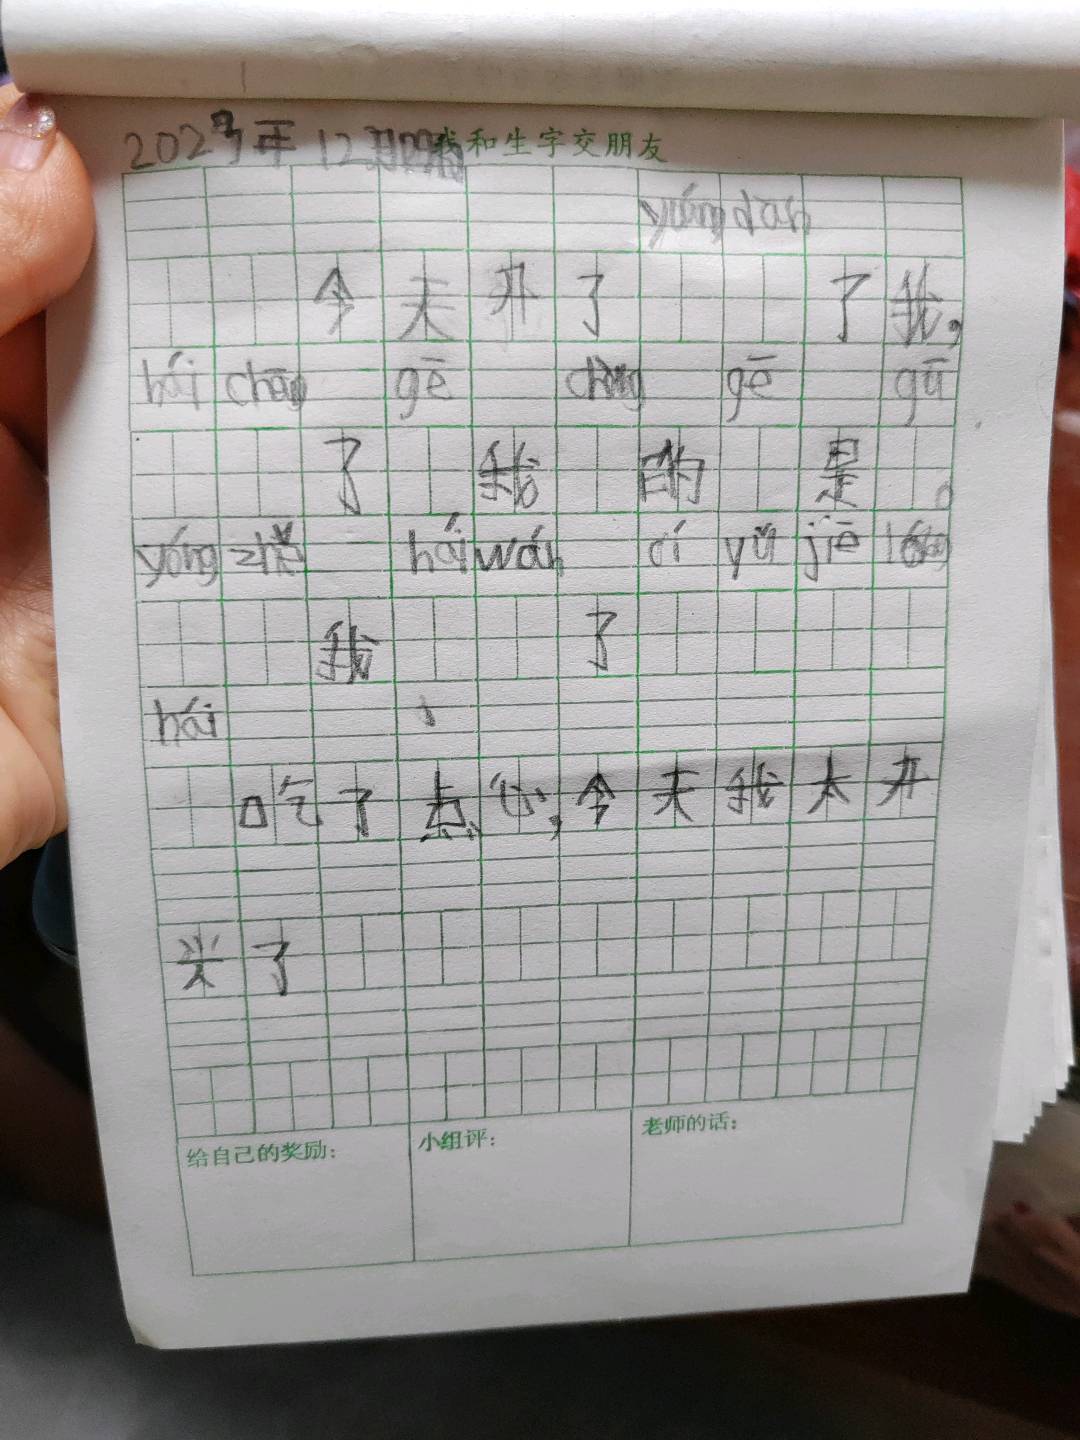 2023年12月 我和生字交朋友
yuán dàn
今天开了 了我,
hái chàng gē chàng gē gū
了我 的 是 。
yóng zhě hái wán cí yǔ jiē lóng
我 了
hái
吃了点心,今天我太开
兴了
给自己的奖励: 小组评: 老师的话: